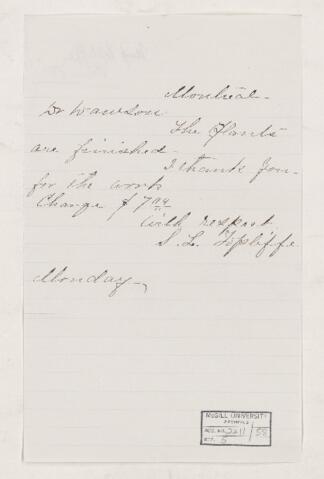 Montreal -
Dr Dawson
The Plants
are finished -
I thank you -
for the work
Charge $7.00
With respect
S. L. Topliffe
Monday -
McGILL UNIVERSITY
ARCHIVES
ACC. NO. 2211/58
REF. 5